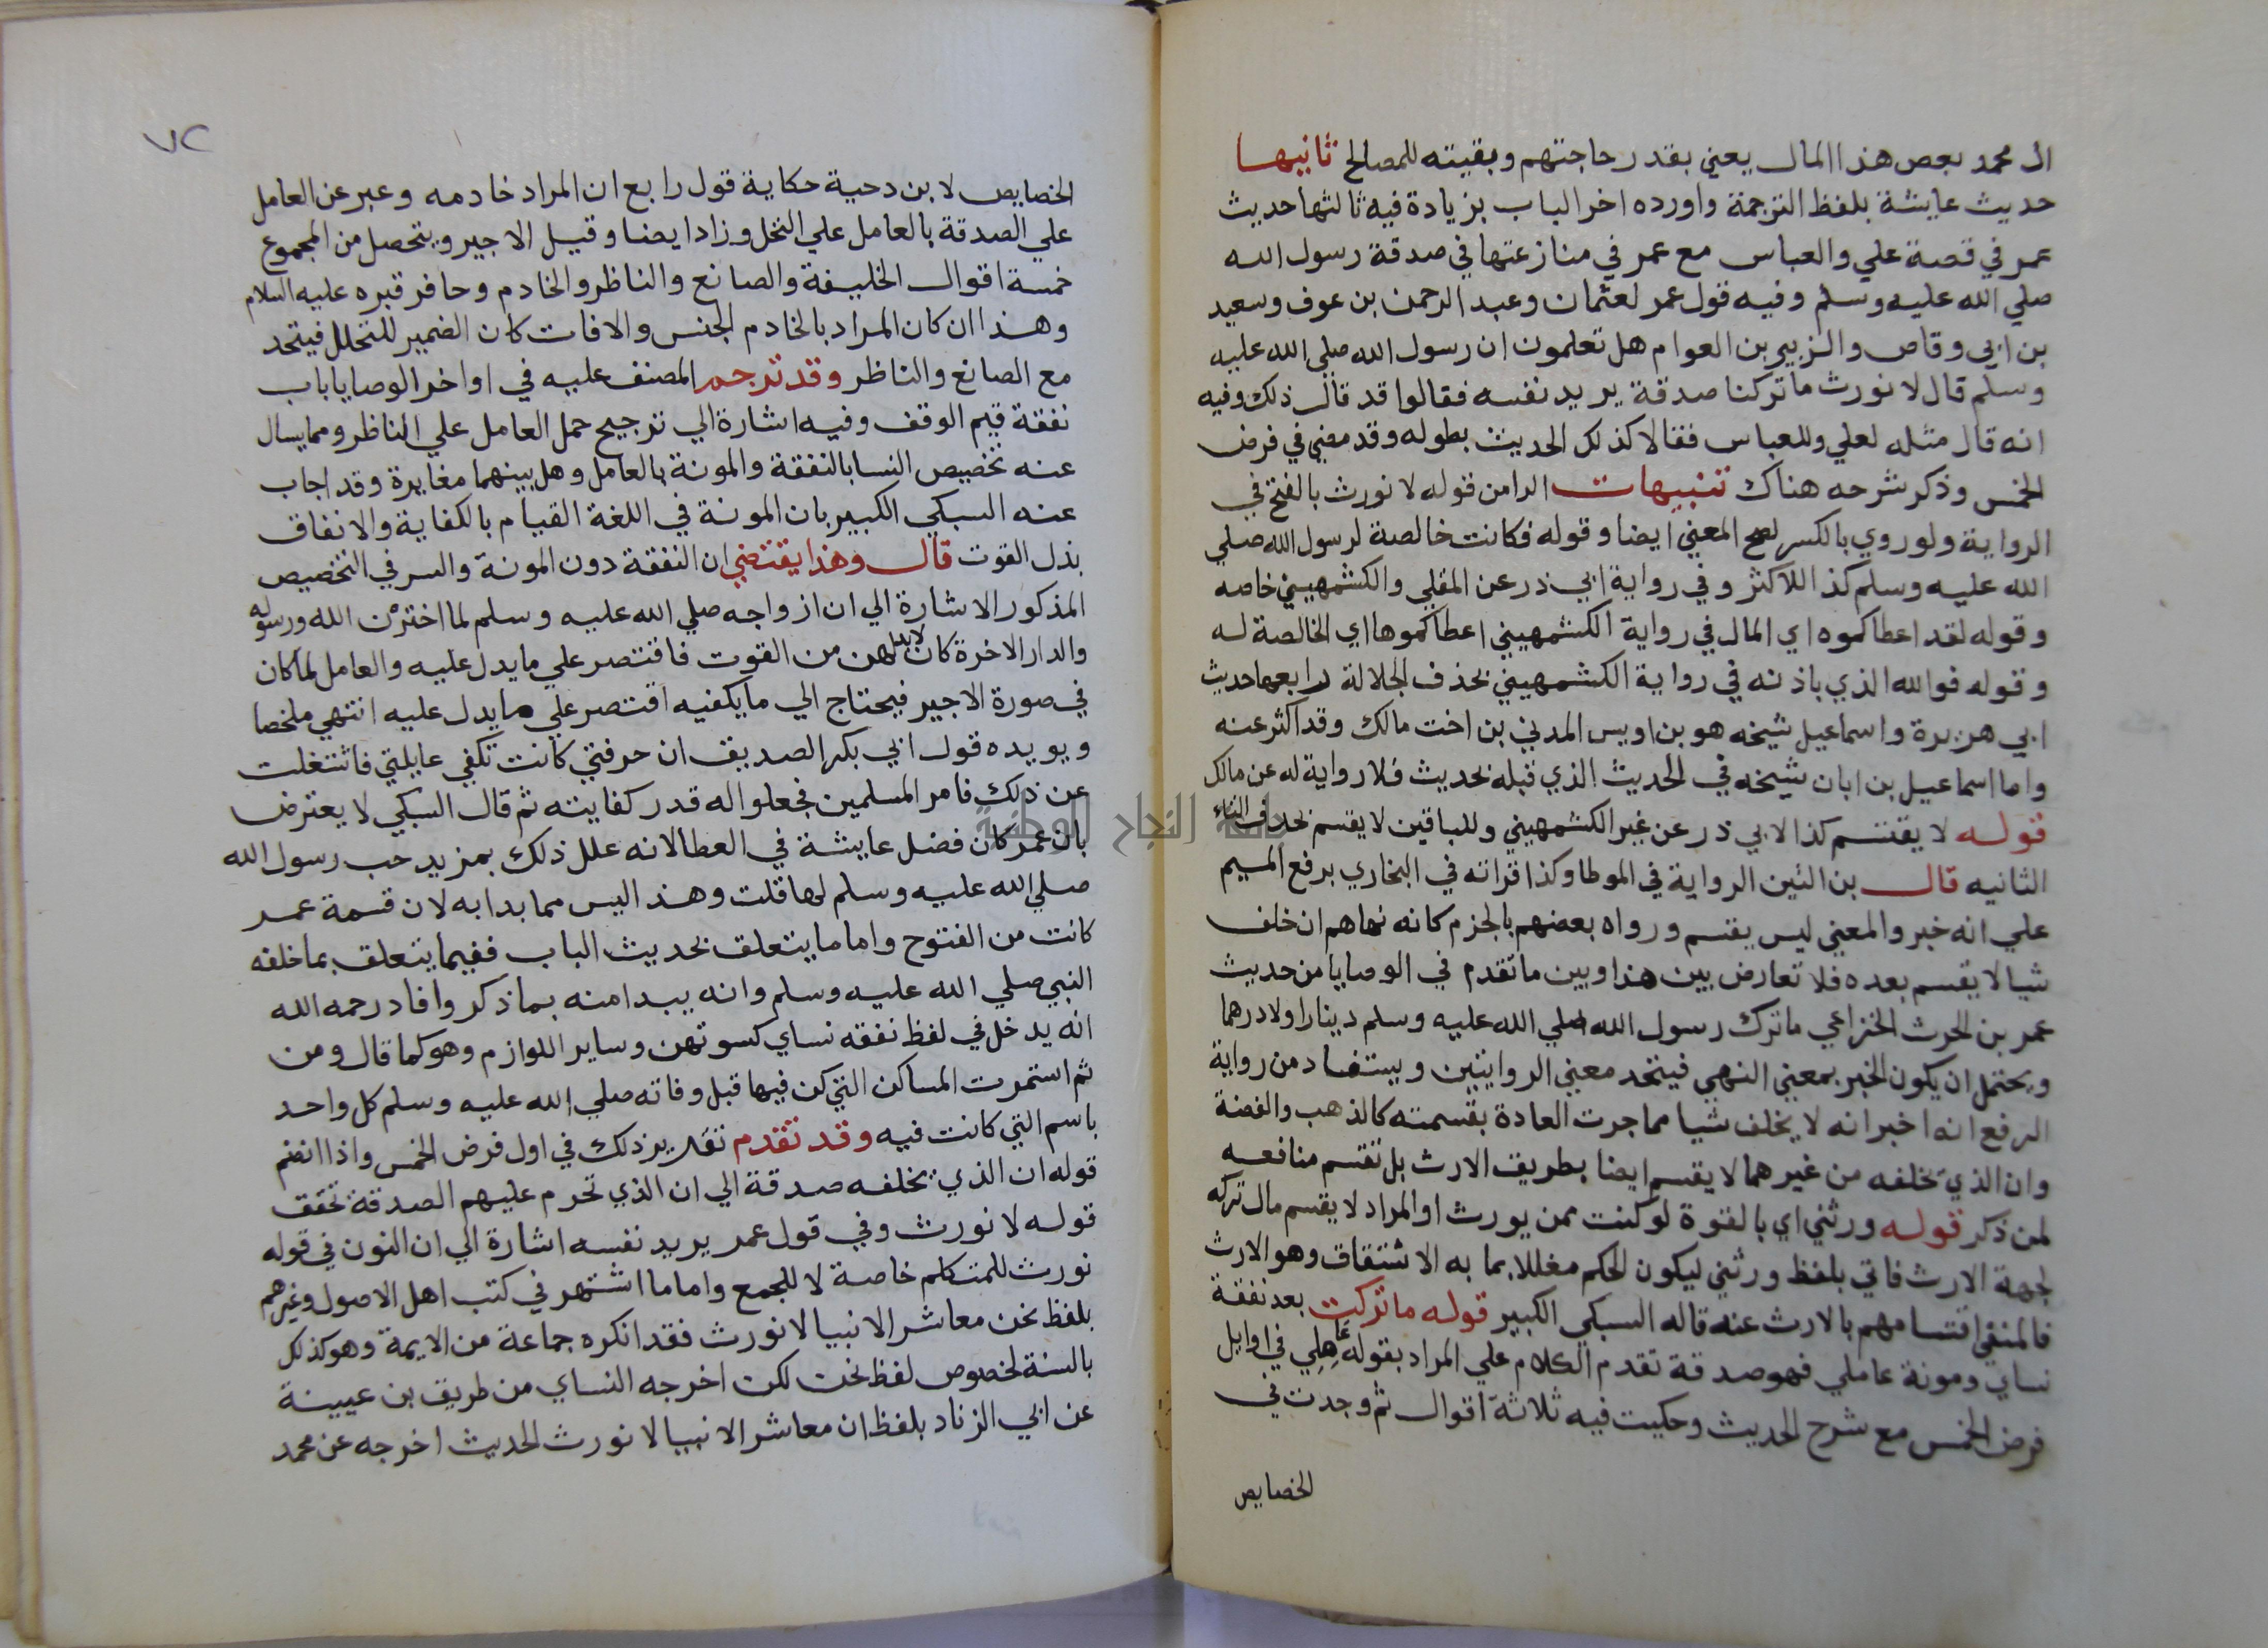 ال محمد بعص هذا المال يعني بقدر حاجتهم وبقيته للمصالح ثانيها
حديث عايشة بلفظ الترجمة واورده اخر الباب بزيادة فيه ثالثها حديث
عمر في قصة علي والعباس مع عمر في منازعتها في صدقة رسول الله
صلي الله عليه وسلم وفيه قول عمر لعثمان وعبد الرحمن بن عوف وسعيد
بن ابي وقاص والزبير بن العوام هل تعلمون ان رسول الله صلي الله عليه
وسلم قال لا نورث ما تركنا صدقة يريد نفسه فقالوا قد قال ذلك وفيه
انه قال مثله لعلي وللعباس فقالا كذلك الحديث بطوله وقد مضي في فرض
الخمس وذكر شرحه هناك تنبيهات الرا من قوله لا نورث بالفتح في
الرواية ولو روي بالكسر لصح المعني ايضا وقوله فكانت خالصة لرسول الله صلي
الله عليه وسلم كذا للاكثر وفي رواية ابي ذر عن المقلي والكشمهيني خاصه
وقوله لقد اعطاكموه اي المال في رواية الكشمهيني اعطاكموها اي الخالصة له
وقوله فوالله الذي باذنه في رواية الكشمهيني بحذف الجلالة رابعها حديث
ابي هريرة واسماعيل شيخه هو بن اويس المدني بن اخت مالك وقد اكثر عنه
واما اسماعيل بن ابان شيخه في الحديث الذي قبله بحديث فلا رواية له عن مالك
قوله لا يقتسم كذا لابي ذر عن غير الكشمهيني وللباقين لا يقسم بحذف التاء
الثانيه قال بن التين الرواية في الموطا وكذا قراته في البخاري برفع الميم
علي انه خبر والمعني ليس يقسم ورواه بعضهم بالجزم كانه نهاهم ان خلف
شيا لا يقسم بعده فلا تعارض بين هذا وبين ما تقدم في الوصايا من حديث
عمر بن الحرث الخزاعي ما ترك رسول الله صلي الله عليه وسلم دينارا ولا درهما
ويحتمل ان يكون الخبر بمعني النهي فيتحد معني الروايتين ويستفاد من رواية
الرفع انه اخبر انه لا يخلف شيا مما جرت العادة بقسمته كالذهب والفضة
وان الذي يخلفه من غيرهما لا يقسم ايضا بطريق الارث بل تقسم منافعه
لمن ذكر قوله ورثني اي بالقوة لو كنت ممن يورث او المراد لا يقسم مال تركه
لجهة الارث فاتي بلفظ ورثني ليكون الحكم مغللا بما به الاشتقاق وهو الارث
فالمنفي اقتسامهم بالارث عنه قاله السبكي الكبير قوله ما تركت بعد نفقة
نساي ومونة عاملي فهو صدقة تقدم الكلام علي المراد بقوله عاملي في اوايل
فرض الخمس مع شرح الحديث وحكيت فيه ثلاثة اقوال ثم وجدت في
الخصايص
٧٢
الخصايص لابن دحية حكاية قول رابع ان المراد خادمه وعبر عن العامل
علي الصدقة بالعامل علي النخل وزاد ايضا وقيل الاجير ويتحصل من المجموع
خمسة اقوال الخليفة والصانع والناظر والخادم وحافر قبره عليه السلام
وهذا ان كان المراد بالخادم الجنس والافات كان الضمير للنخل فيتحد
مع الصانع والناظر وقد ترجم المصنف عليه في اواخر الوصايا باب
نفقة قيم الوقف وفيه اشارة الي ترجيح حمل العامل علي الناظر ومما يسال
عنه تخصيص النسا بالنفقة والمونة بالعامل وهل بينهما مغايرة وقد اجاب
عنه السبكي الكبير بان المونة في اللغة القيام بالكفاية والانفاق
بذل القوت قال وهذا يقتضي ان النفقة دون المونة والسر في التخصيص
المذكور الاشارة الي ان ازواجه صلي الله عليه وسلم لما اخترن الله ورسوله
والدار الاخرة كان لابد لهن من القوت فاقتصر علي ما يدل عليه والعامل لما كان
في صورة الاجير فيحتاج الي ما يكفيه اقتصر علي ما يدل عليه انتهي ملخصا
ويويده قول ابي بكر الصديق ان حرفتي كانت تكفي عايلتي فاشتغلت
عن ذلك فامر المسلمين فجعلوا له قدر كفايته ثم قال السبكي لا يعترض
بان عمر كان فضل عايشة في العطا لانه علل ذلك بمزيد حب رسول الله
صلي الله عليه وسلم لها قلت وهذا ليس مما بدا به لان قسمة عمر
كانت من الفتوح واما ما يتعلق بحديث الباب ففيما يتعلق بما خلفه
النبي صلي الله عليه وسلم وانه يبدا منه بما ذكر وافاد رحمه الله
انه يدخل في لفظ نفقه نساي كسوتهن وساير اللوازم وهو كما قال ومن
ثم استمرت المساكن التي كن فيها قبل وفاته صلي الله عليه وسلم كل واحد
باسم التي كانت فيه وقد تقدم تقرير ذلك في اول فرض الخمس واذا انضم
قوله ان الذي يخلفه صدقة الي ان الذي تحرم عليهم الصدقة تحقق
قوله لا نورث وفي قول عمر يريد نفسه اشارة الي ان النون في قوله
نورث للمتكلم خاصة لا للجمع واما ما اشتهر في كتب اهل الاصول وغيرهم
بلفظ نحن معاشر الانبيا لا نورث فقد انكره جماعة من الايمة وهو كذلك
بالسنة لخصوص لفظ نحن لكن اخرجه النساي من طريق بن عيينة
عن ابي الزناد بلفظ ان معاشر الانبيا لا نورث الحديث اخرجه عن محمد
جامعة النجاح الوطنية